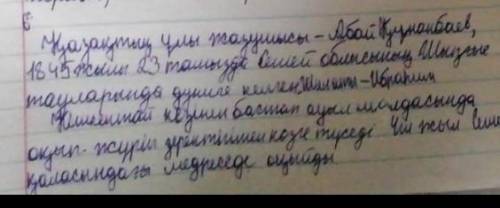 Қазақтың ұлы жазушысы - Абай Құнанбаев,
1845 жылы 23 тамызда Семей облысының Шыңғыс
тауларында дүниге келген. Шын аты - Ибрагим
Кішкентай кезінен бастап ауыл молдасында
оқып-жүріп зеректігімен көзге түседі Үш жыл Семей
қаласындағы медреседе оқыйды